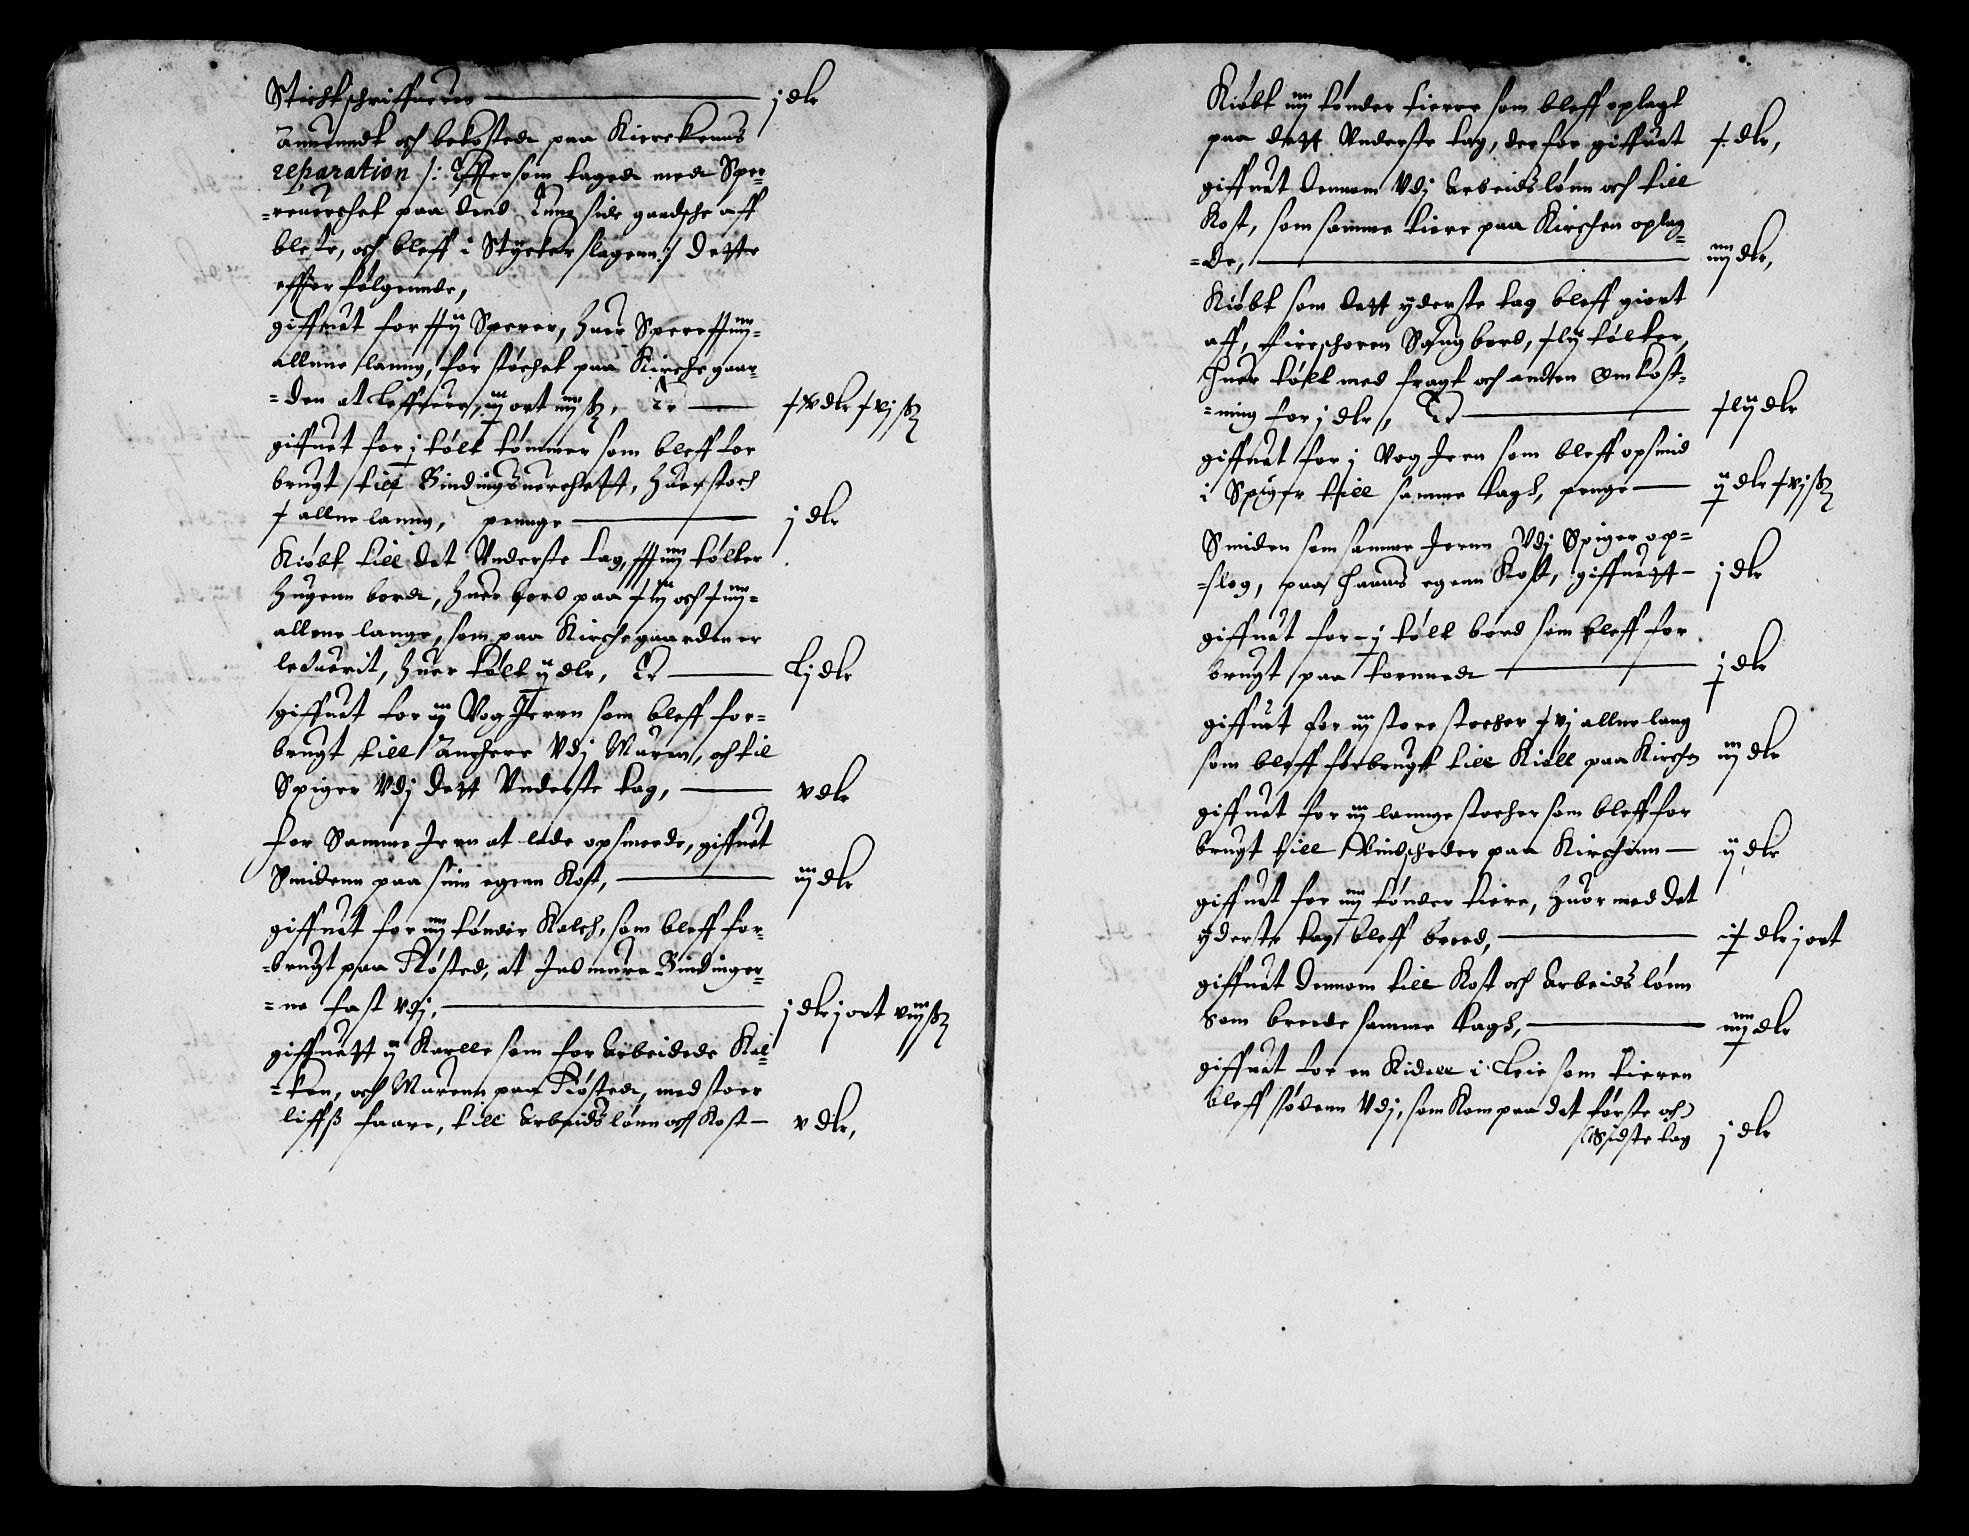 Stichtschriffueren — j dlr
Anuendt och bekosted paa Kierckenns
reparation /: Effersom taged med Sper-
=reuerchet paa dend Enne side gandsche aff
bleste, och bleff i Stÿcker slagenn :/ dette
effter følgennde,
giffuet for xxij Sperer, huer Sperre xiiij-
allenn lanng, for støchet paa Kirchegaar-
=den at leffuere, iij ort iiij ß, Er — xv dlr xvj ß
giffuet for j tølt tømmer som bleff for
brugt till Bindingsuerchett, huer stoch
x allen lanng, pennge — j dlr
Kiøbt till det Underste tag, xxiiij tølter
hugenn bord, huer bord paa xiij och xiiij-
allenn lange, som paa Kirchegaarden er
leduerit, huer tølt ij dlr, Er — Lj dlr
giffuet for iij Vog Jernn som bleff for-
brugt till Anchere Udj Muren, och til
Spiger Udj dett Underste tag, — v dlr
for Samme Jern at lade opsmeede, giffuet
Smidenn paa sin egenn Kost, — iij dlr
giffuet for iiij tønder Kalch, som bleff for-
=brugt paa Røsted, at Indmure Bindinger-
=ne fast udj, — j dlr j ort viij ß
giffuett ij Karlle som for arbeidede Kal-
=ken, och Murenn paa Røsted, med stoer
liffs faare, till arbeids lønn och Kost — v dlr,
Kiøbt iiij tønder tierre som bleff oplagt
paa dett Underste tag, der for giffuet x dlr,
giffuet dennem Udj arbeidslønn och till
Kost, som samme tiere paa Kirchen oplag-
=de, — iiij dlr,
Kiøbt som dett ÿderste tag bleff giort
aff, fiireschoren Saugbord, xlij tølter,
huer tølt med fragt och anden omkost-
=ning for j dlr, Er — xlij dlr
giffuet for j Vog Jern som bleff opsmid
i Spiger till samme tagh, penge — ij dlr xvj ß
Smiden som samme Jernn Udj Spiger op-
=slog, paa hanns egenn Kost, giffuett — j dlr
giffuet for j tølt bord som bleff for
brugt paa tornned — j dlr
giffuet for iij store stocher xvj allne lang
som bleff forbrugt till Kiøll paa Kirchen iij dlr
giffuet for iij lannge stocher som bleff for
brugt till Vindscheder paa Kirchenn — ij dlr
giffuet for iiij tønder tiere, huormed det
ÿderste tag bleff breed, — ix dlr j ort
giffuet dennom till Kost och arbeids lønn
Som breede samme tagh, — iiij dlr
giffuet for en Kidell i Leie som tieren
bleff sødenn Udj, som Kom paa det første och
Sidste tag j dlr